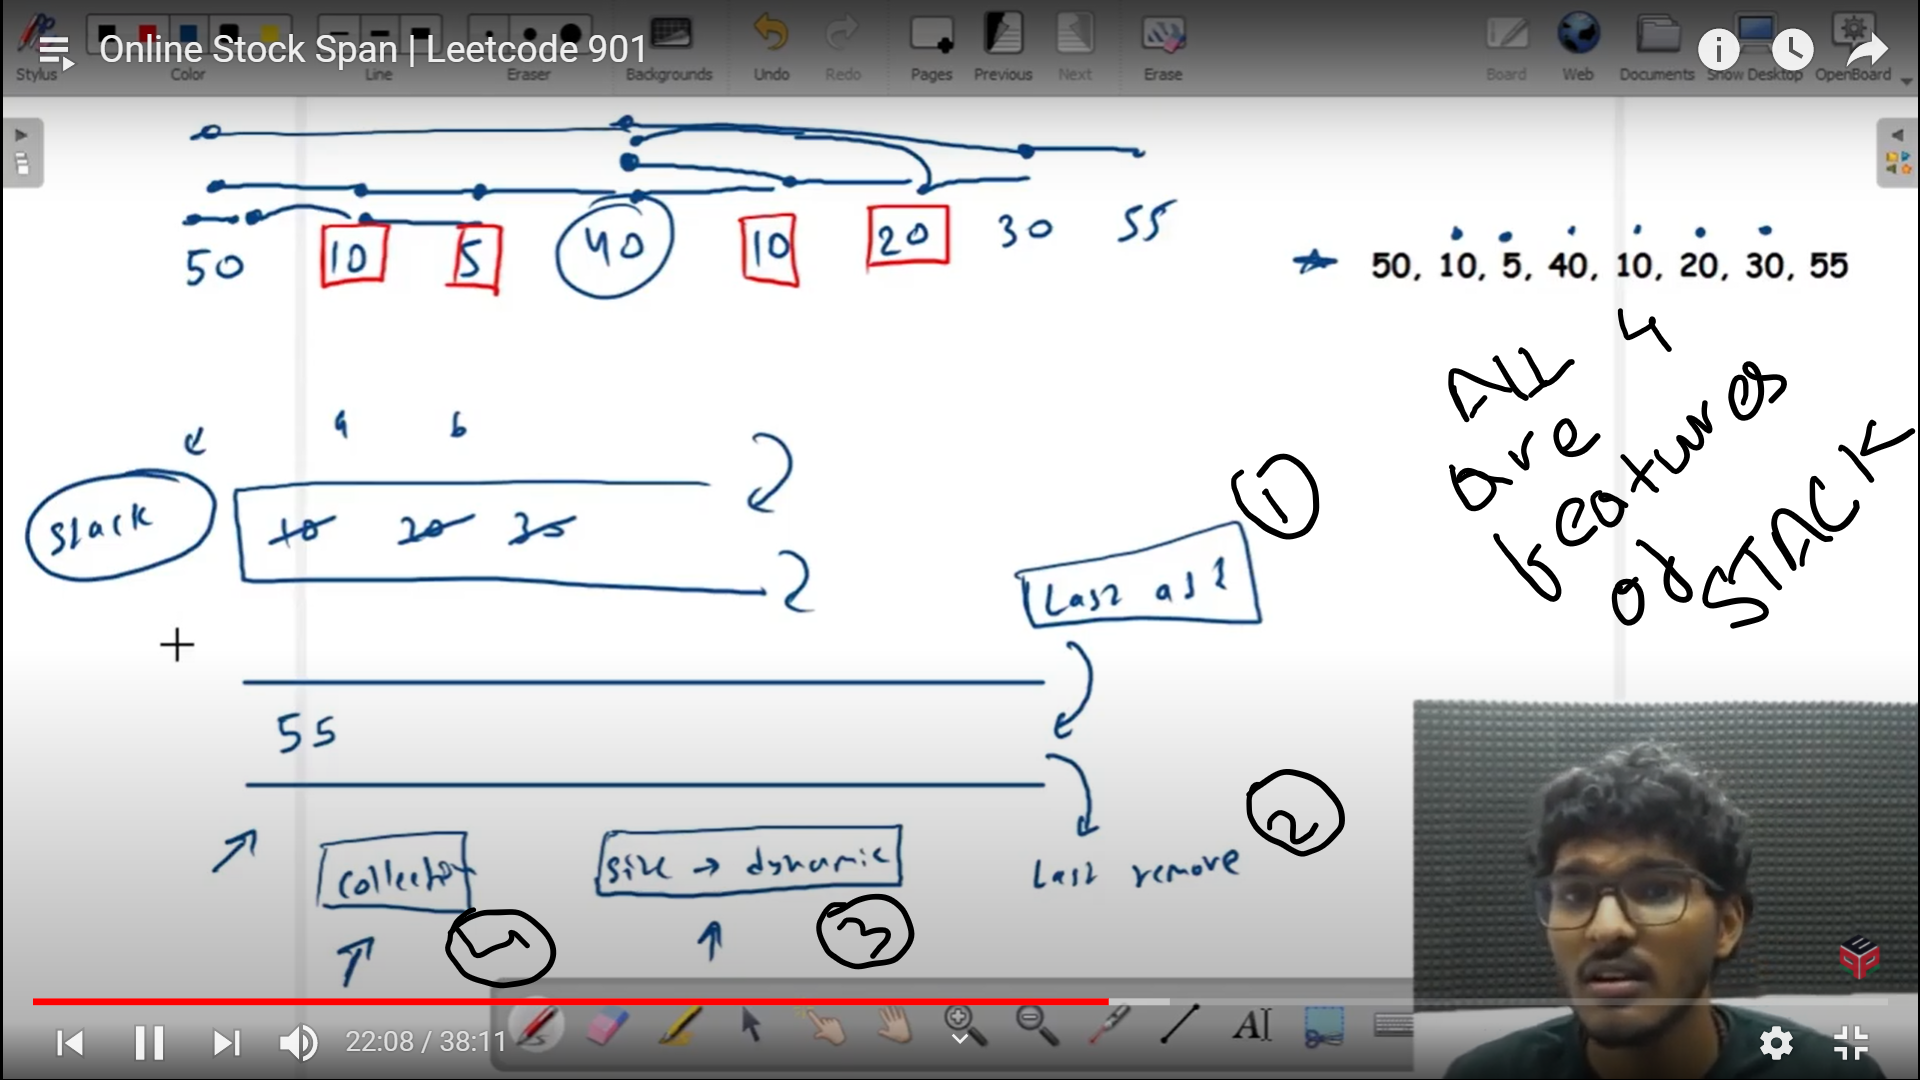 Online Stock Span | Leetcode 901
Stylus Color Line Eraser Backgrounds Undo Redo Pages Previous Next Erase Board Web Documents Show Desktop OpenBoard
50 10 5 40 10 20 30 55
50, 10, 5, 40, 10, 20, 30, 55
All 4
are
features
of
STACK
a b
Stack
10 20
1
Last
2
55
Last remove
size → dynamic
3
4
22:08 / 38:11
AI